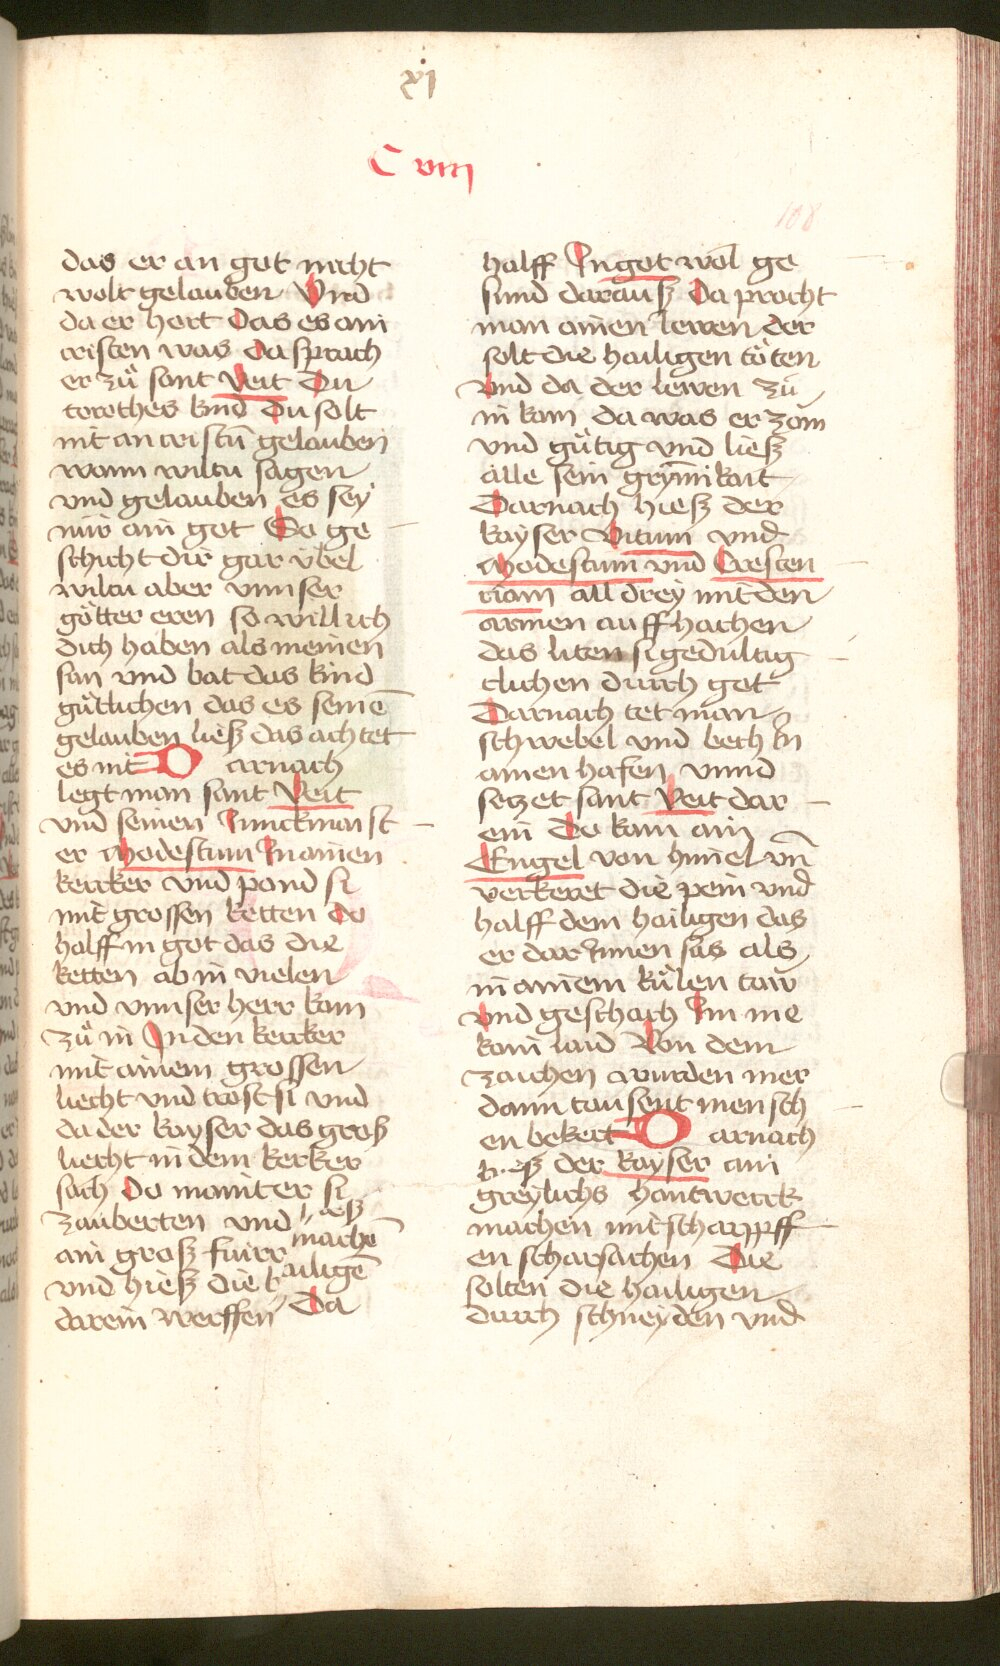 xi
C viii
108
das er an got nicht
wolt gelauben Vnd
da er hort Das es ain
cristen was Da sprach
er zů sant Veit Du
torothes kind Du solt
nit an cristū gelauben
wann wiltu sagen
vnd gelauben es sey
nur ain got So ge
schicht dir gar v̈bel
wiltu aber vnnser
götter eren so will ich
dich haben als meinen
sun vnd bat das kind
gůtlichen das es seinē
gelauben liesz das achtet
es nit Darnach
legt man sant Veit
vnd seinen Junckmaist
er Modestum In ainen
kercker vnd pand si
mit grossen ketten Do
halff in got das die
ketten ab in vielen
vnd vnnser herr kam
zů in In den kercker
mit ainem grossen
liecht vnd tröst si vnd
da der kayser das grosz
liecht in dem kerker
sach Do maint er si
zauberten vnd hiesz
ain grosz fuirr machē
vnd hiesz die hailigē
darein werffen Da
halff In got wol ge
sund darausz Da pracht
man ainen lewen der
solt die hailigen töten
Vnd da der lewen zů
in kam da was er zam
vnd gůtig vnd liesz
alle sein grym̄ikait
Darnach hiesz der
kayser Vitum vnd
Modestum vnd Cresten
ciam all drey mit den
armen auff hachen
das liten si gedultig
clichen durch got
Darnach tet man
schwebel vnd bech In
ainen hafen vnnd
setzet sant Veit dar
ein Do kam ain
Engel von himel vn̄
verkeret die pein vnd
halff dem hailigen das
er dar Innen sas als
in ainem külen taw
Vnd geschach Im nie
kain laid Von dem
zaichen wurden mer
dann tausent mensch
en bekert Darnach
hiesz der kayser ain
greylichs hantwerck
machen mit scharpff
en scharsachen Die
solten die hailigen
durch schneyden vnd